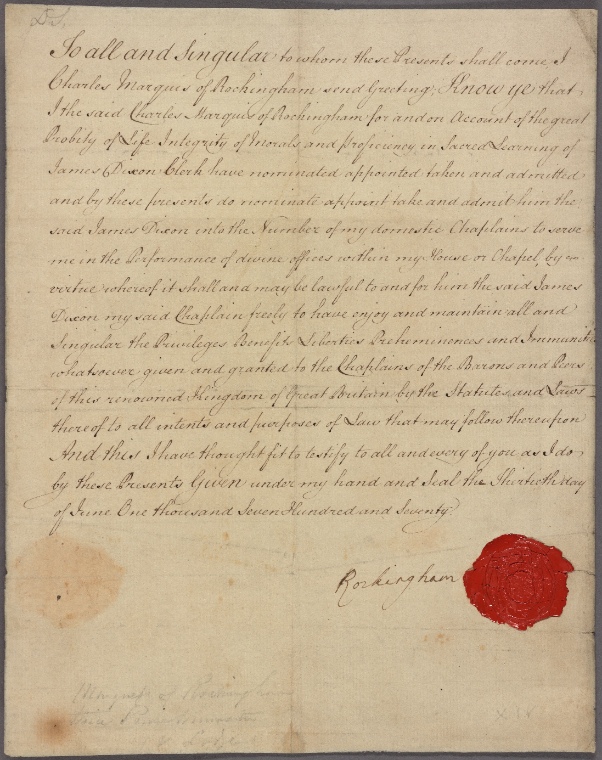 D.S.
To all and Singular to whom these Presents shall come, I
Charles Marquis of Rockingham send Greeting; Know ye that
I the said Charles Marquis of Rockingham for and on Account of the great
Probity of Life Integrity of Morals and proficiency in Sacred Learning of
James Dixon Clerk have nominated appointed taken and admitted
and by these presents do nominate appoint take and admit him the
said James Dixon into the Number of my domestic Chaplains to serve
me in the Performance of divine offices within my House or Chapel, by
virtue whereof it shall and may be lawful to and for him the said James
Dixon my said Chaplain freely to have enjoy and maintain all and
Singular the Privileges Benefits Liberties Preheminences and Immunities
whatsoever given and granted to the Chaplains of the Barons and Peers
of this renowned Kingdom of Great Britain by the Statutes and Laws
thereof to all intents and purposes of Law that may follow thereupon
And this I have thought fit to testify to all and every of you as I do
by these Presents Given under my hand and Seal the Thirtieth day
of June One thousand Seven Hundred and Seventy.
Rockingham
Marquis of Rockingham
XIV